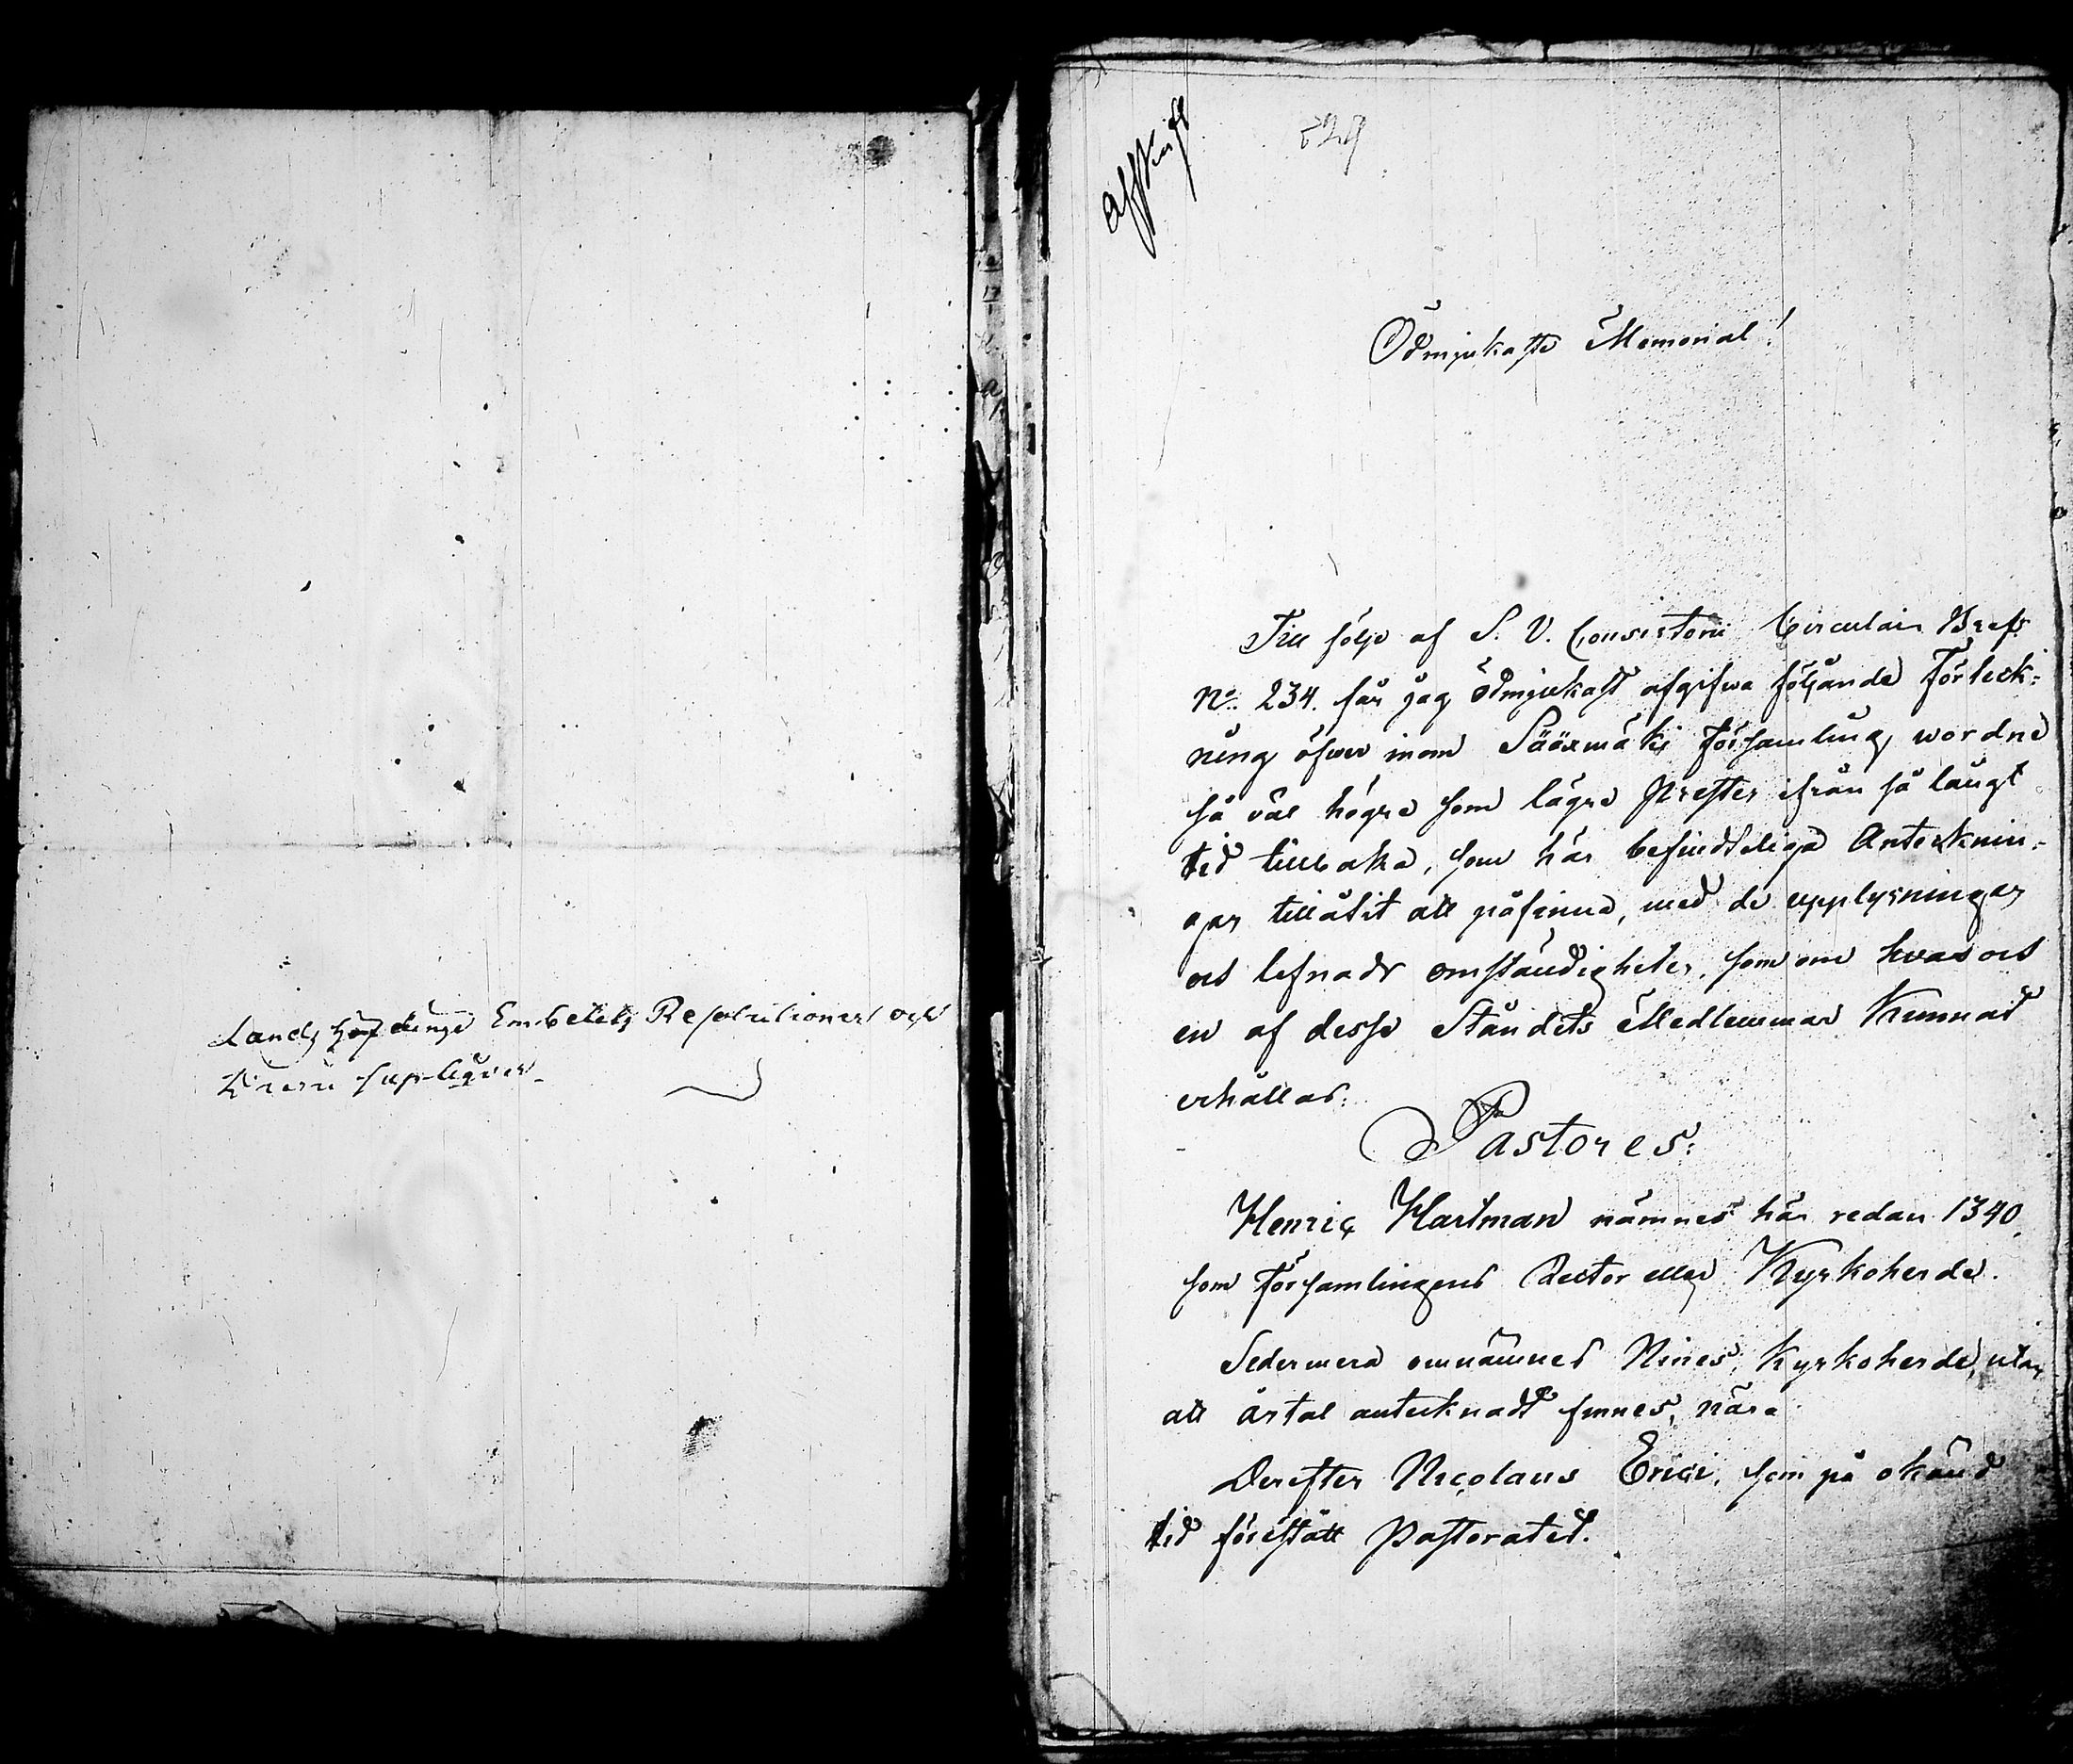 Landshöfdinge Embetets Resolutioner och
supliquer
Afskrift
529
Ödmjukaste Memorial!
Till följe af S. V. Consistorii Circulair Bref
No. 234. får jag ödmjukast afgifwa följande Förteck=
ning öfwer inom Sääxmäki Församling wordne
så väl högre som lägre Prester ifrån så långt
tid tillbaka, som här befindteliga Anteknin=
gar tillåtit att påfinna, med de upplysningar
och lefnads omständigheter, som om hvar och
en af desse Ståndets Medlemmar kunnat
erhållas:
Pastores:
Henric Hartman nämnes här redan 1340,
som Församlingens Rector eller Kyrkoherde.
Sedermera omnämnes Kyrkoherde, utan
att årtal antecknadt finnes, när
Derefter Nicolaus Erici, som på okänd
tid förestått Pastoratet.